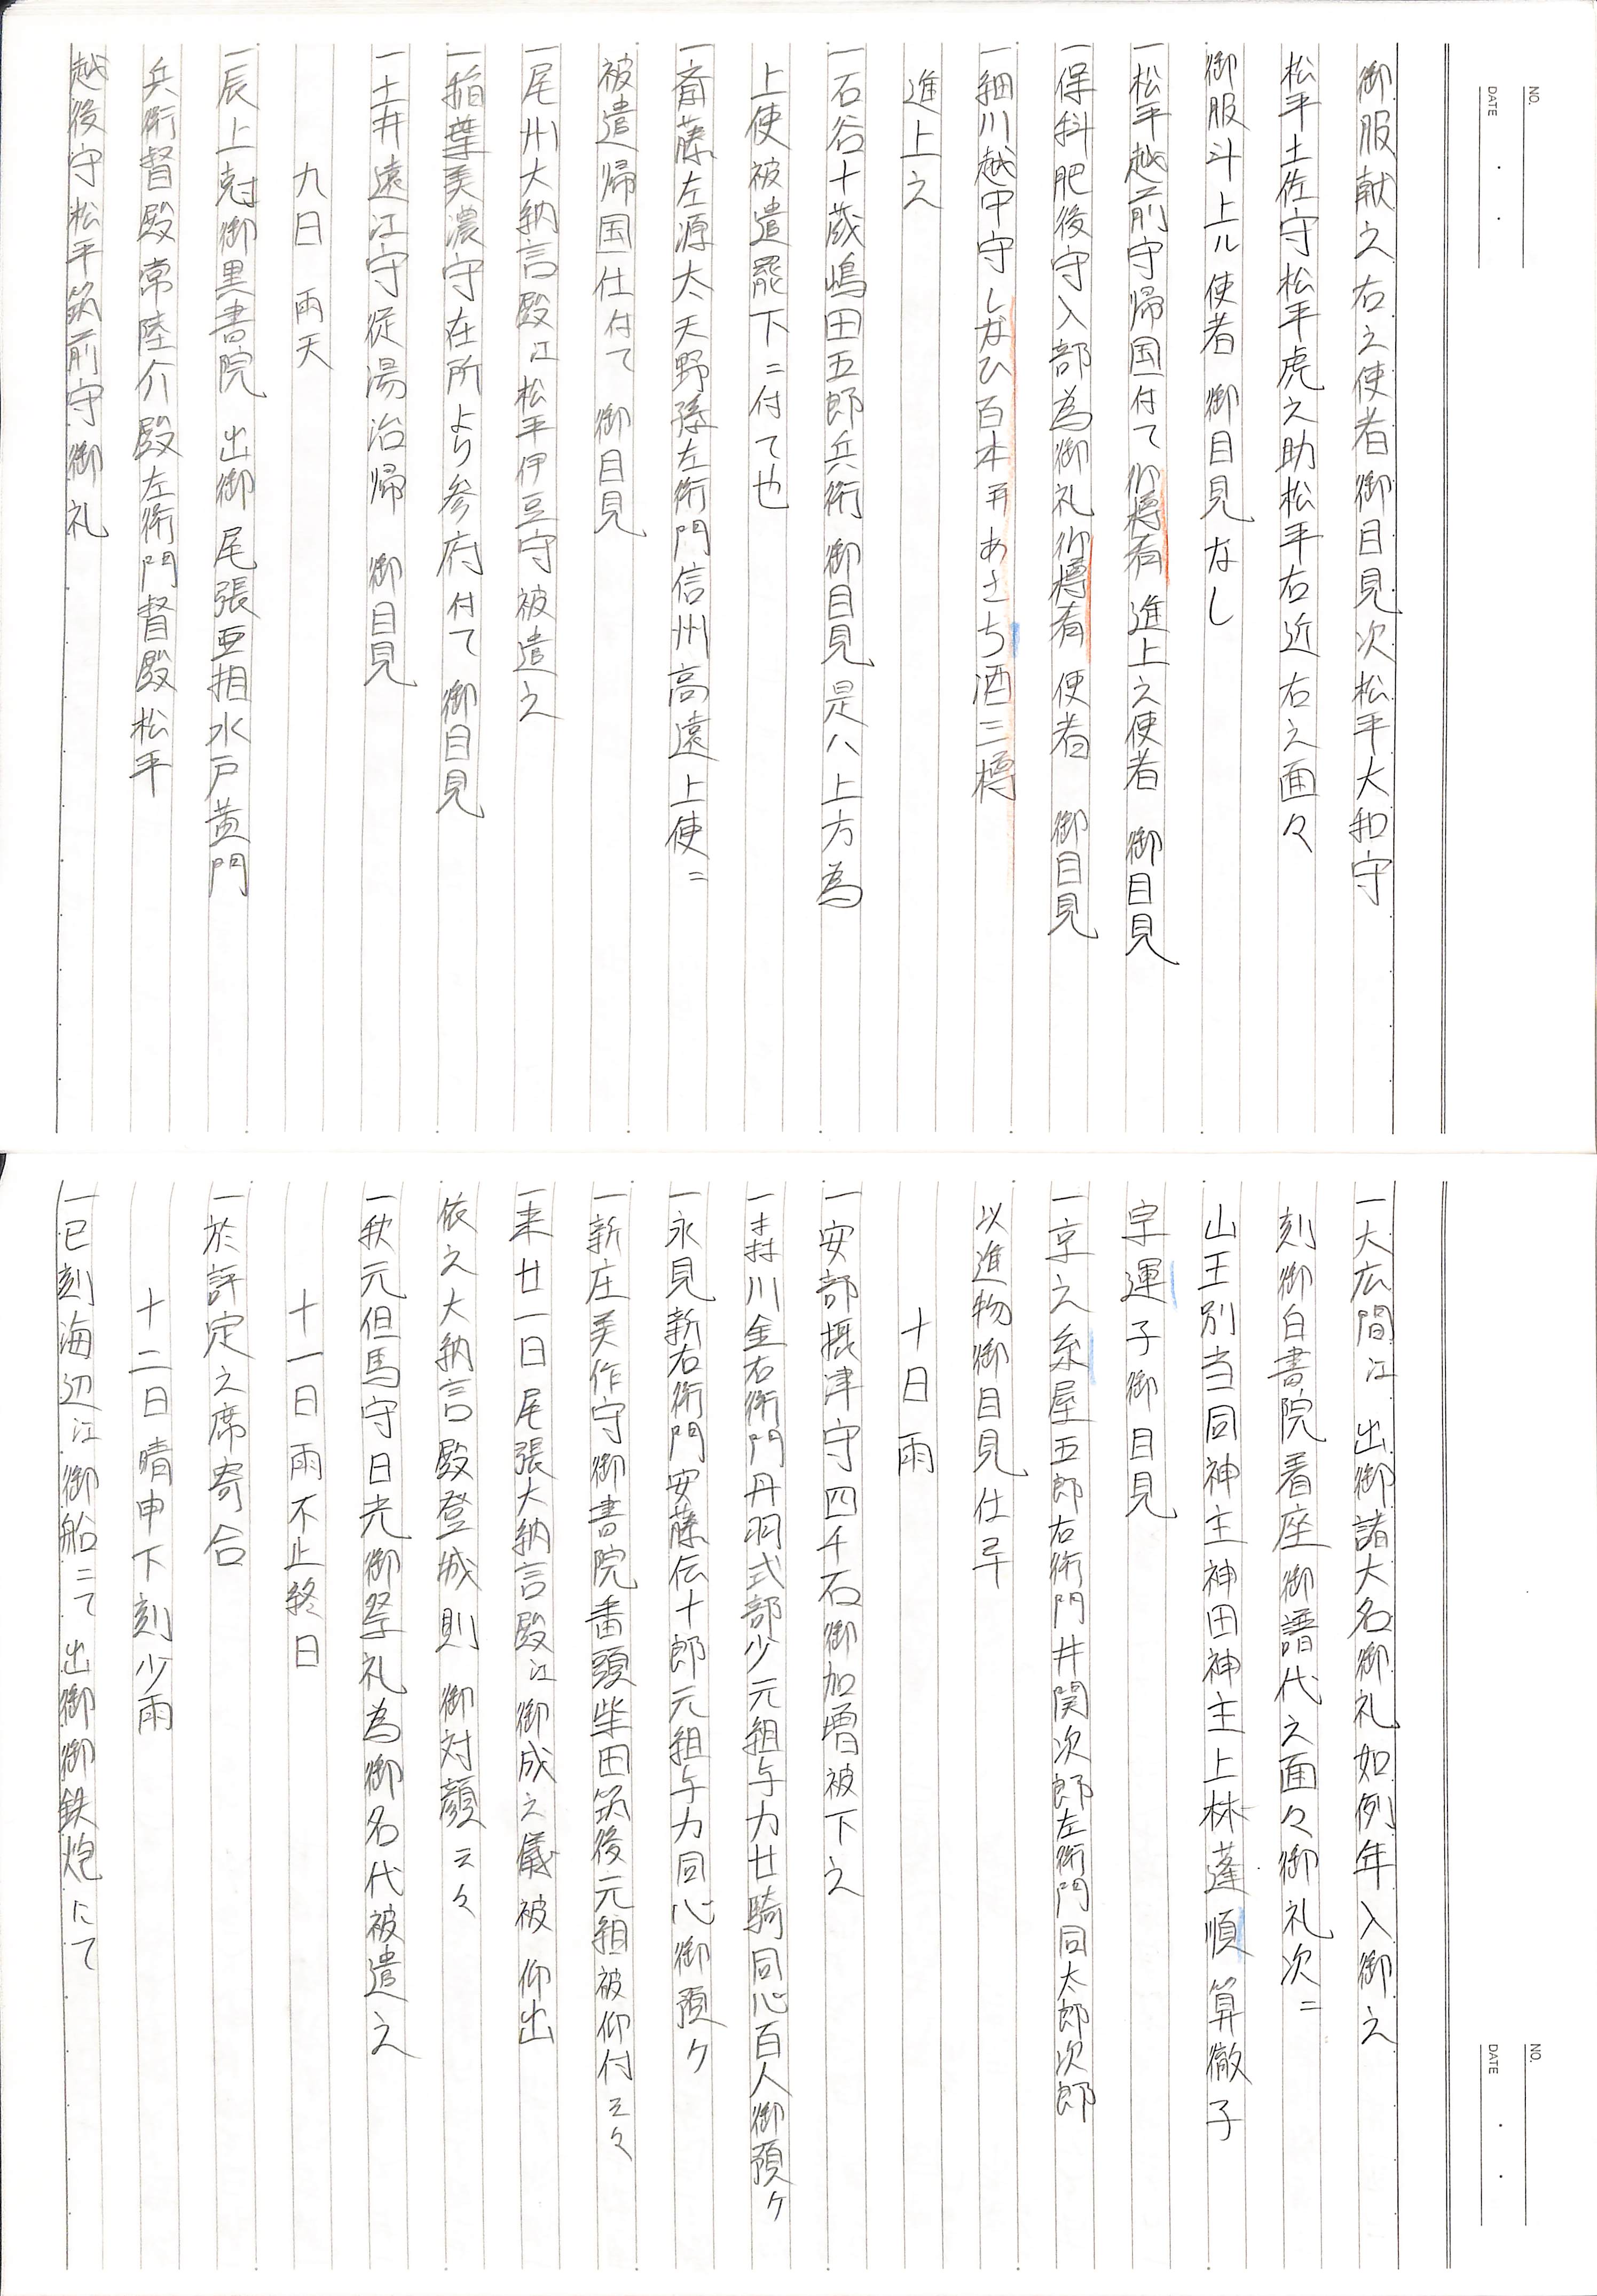 NO.
DATE
御服献之右之使者御目見次松平大和守
松平土佐守松平虎之助松平右近右之面々
御服斗上ル使者 御目見なし
一松平越前守帰国付て 樽肴 進上之使者 御目見
一保科肥後守入部為御礼 樽肴 使者 御目見
一細川越中守しなひ百本并あさち酒三樽
進上之
一石谷十蔵嶋田五郎兵衛 御目見 是ハ上方為
上使被遣罷下ニ付て也
一斎藤左源太天野孫左衛門信州高遠上使ニ
被遣帰国仕付て 御目見
一尾州大納言殿江松平伊豆守被遣之
一稲葉美濃守在所より参府付て 御目見
一土井遠江守従湯治帰 御目見
九日 雨天
一辰上尅御黒書院 出御 尾張亜相水戸黄門
兵衛督殿常陸介殿左衛門督殿松平
越後守松平筑前守御礼
NO.
DATE
一大広間江 出御諸大名御礼如例年入御之
刻御白書院着座御譜代之面々御礼次ニ
山王別当同神主神田神主上林蓬順 算徹子
宇運子御目見
一京之糸屋五郎右衛門井関次郎左衛門同太郎次郎
以進物御目見仕
十日 雨
一安部摂津守四千石御加増被下之
一森川金右衛門丹羽式部少元組与力廿騎同心百人御預ケ
一永見新右衛門安藤伝十郎元組与力同心御預ケ
一新庄美作守御書院番頭柴田筑後元組被仰付云々
一来廿一日尾張大納言殿江御成之儀被 仰出
依之大納言殿登城則 御対顔云々
一秋元但馬守日光御祭礼為御名代被遣之
十一日 雨不止終日
一於評定之席寄合
十二日 晴申下刻少雨
一巳刻海辺江御船ニて 出御御鉄炮にて